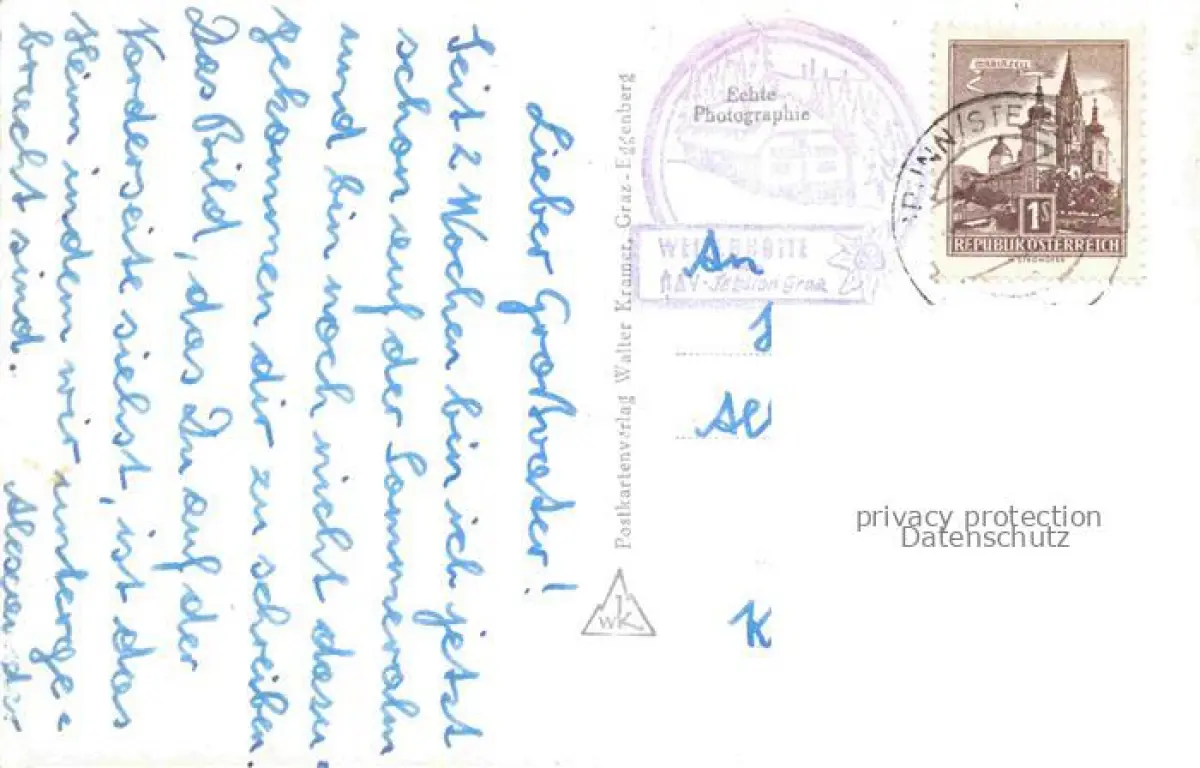 Lieber Großvater!
Seit 2 Wochen bin ich jetzt
schon auf der Sommeralm
und bin noch nicht dazu
gekommen dir zu schreiben.
Das Bild, das Du auf der
Vorderseite siehst, ist das
Heim indem wir unterge-
bracht sind.
Postkartenverlag Walter Kramer, Graz-Eggenberg
WK
Echte
Photographie
HÜTTE
Sektion Graz
An
K
MARIAZELL
1S
REPUBLIK ÖSTERREICH
privacy protection
Datenschutz